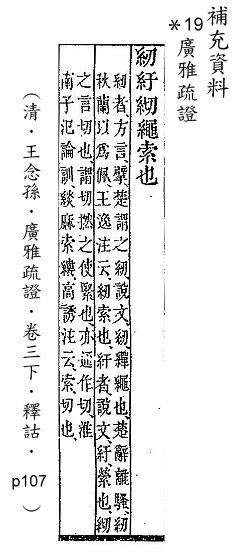 補充資料
*19 廣雅疏證
紉紆紉繩索也
紉者方言擘楚謂之紉說文紉繟繩也楚辭離騷紉
秋蘭以為佩王逸注云紉索也紆者說文紆縈也紉
之言切也謂切撚之使緊也亦通作切淮
南子氾論訓緂麻索縷高誘注云索切也
(清．王念孫．廣雅疏證．卷三下．釋詁．p107)